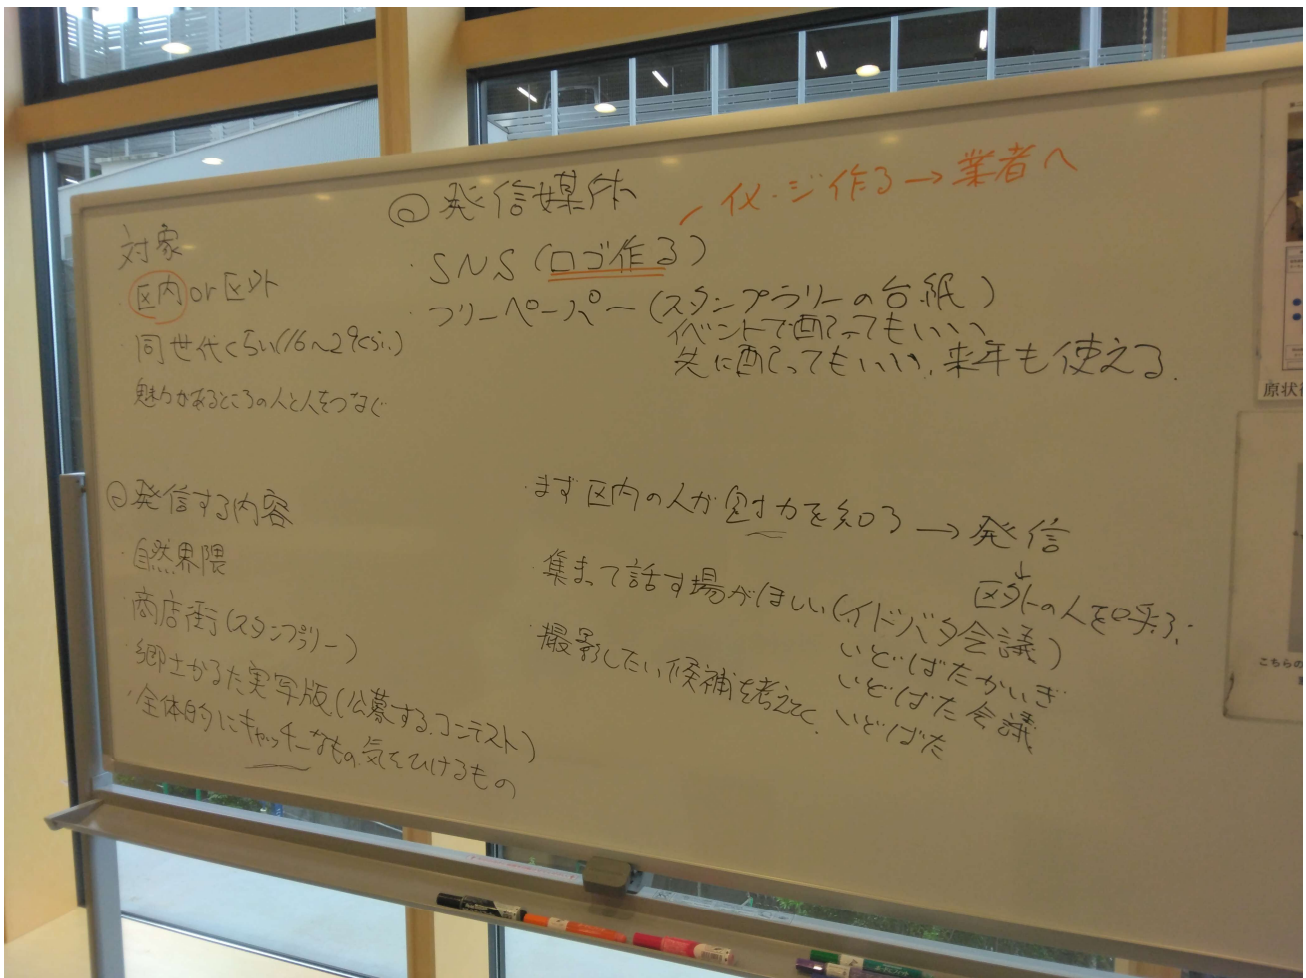 対象
・区内or区外
・同世代くらい(16〜29くらい)
魅力があるところの人と人をつなぐ
◎発信媒体
イメージ作る→業者へ
・SNS(ロゴ作る)
・フリーペーパー(スタンプラリーの台紙)
イベントで配ってもいい
先に配ってもいい、来年も使える。
◎発信する内容
・自然界隈
・商店街(スタンプラリー)
・郷土かるた実写版(公募する、コンテスト)
・全体的にキャッチーなもの、気をひけるもの
・まず区内の人が魅力を知る→発信
↓
区外の人を呼ぶ
・集まって話す場がほしい(イドバタ会議)
いどばたかいぎ
いどばた会議
いどばた
・撮影したい候補を考えてく
原状
こちらの